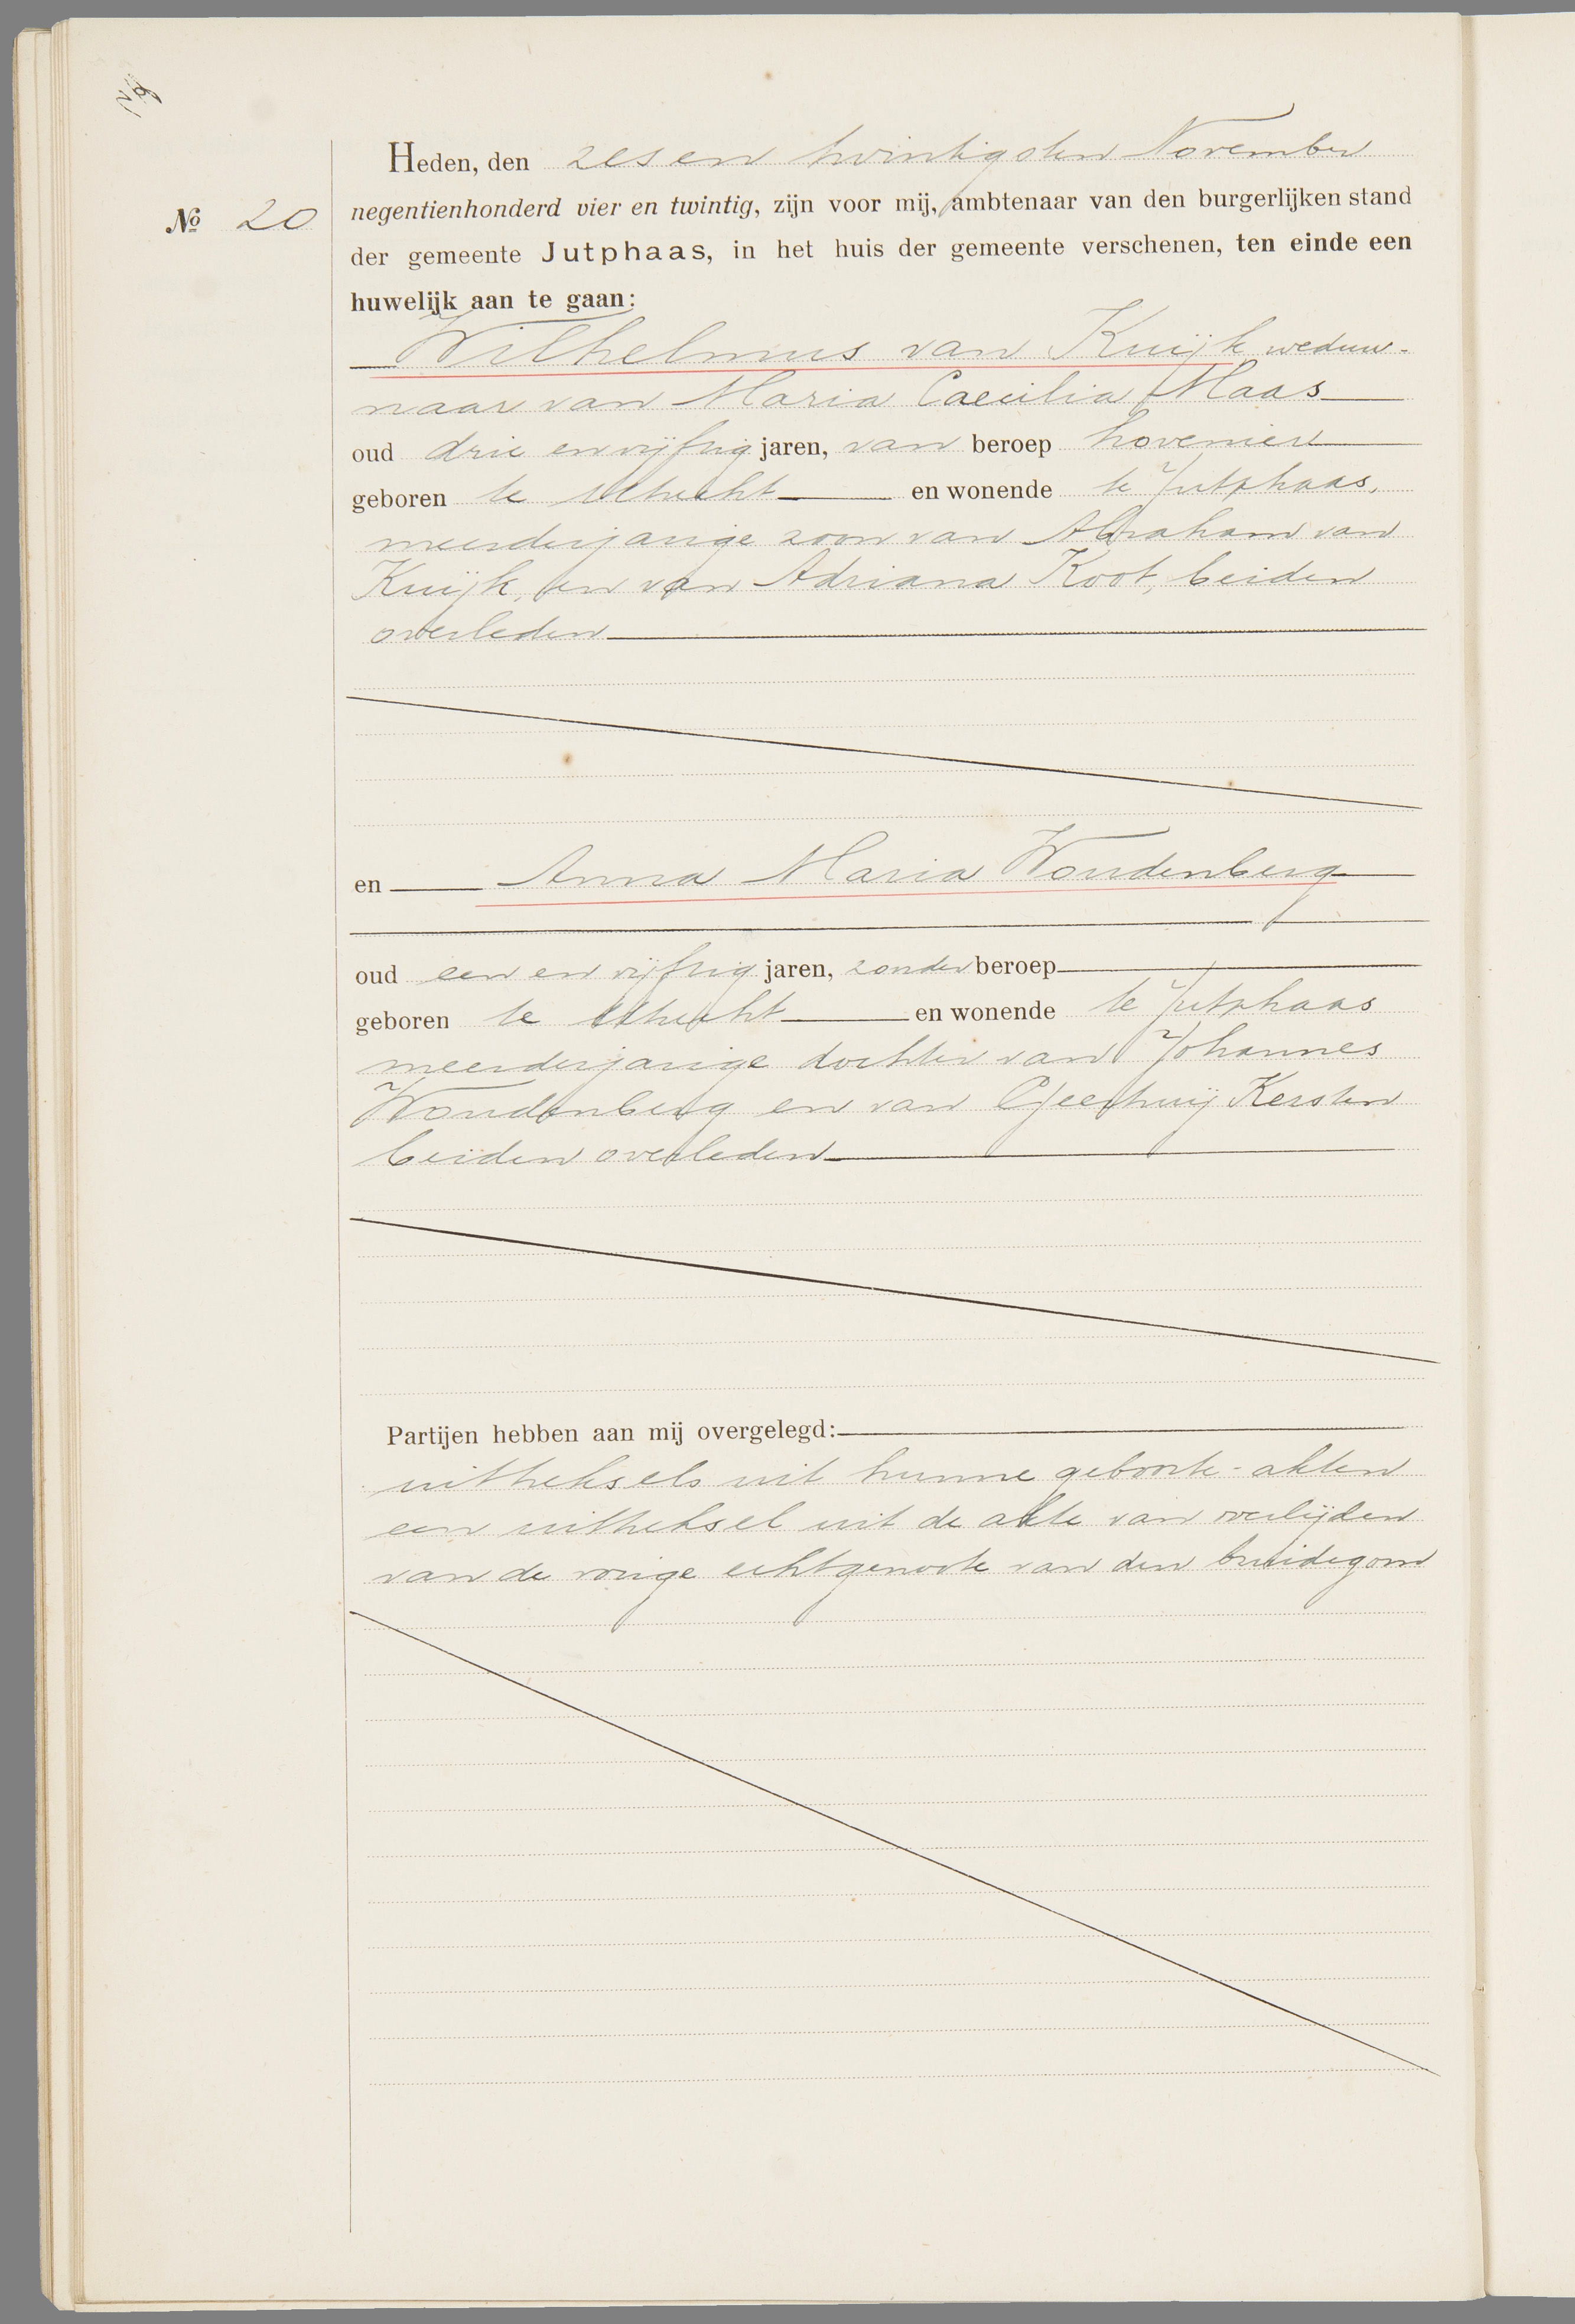 Heden, den zes en twintigsten November
No 20
negentienhonderd vier en twintig, zijn voor mij, ambtenaar van den burgerlijken stand
der gemeente Jutphaas, in het huis der gemeente verschenen, ten einde een
huwelijk aan te gaan:
Wilhelmus van Kuijk, weduw-
naar van Maria Caecilia Maas
oud drie en vijftig jaren, van beroep hovenier
geboren te Utrecht en wonende te Jutphaas,
meerderjarige zoon van Abraham van
Kuijk, en van Adriana Koot, beiden
overleden
en Anna Maria Woudenberg
oud een en vijftig jaren, zonder beroep
geboren te Utrecht en wonende te Jutphaas
meerderjarige dochter van Johannes
Woudenberg en van Geertruij Kersten
beiden overleden
Partijen hebben aan mij overgelegd:
uittreksels uit hunne geboorte-akten
een uittreksel uit de akte van overlijden
van de vorige echtgenoote van den bruidegom